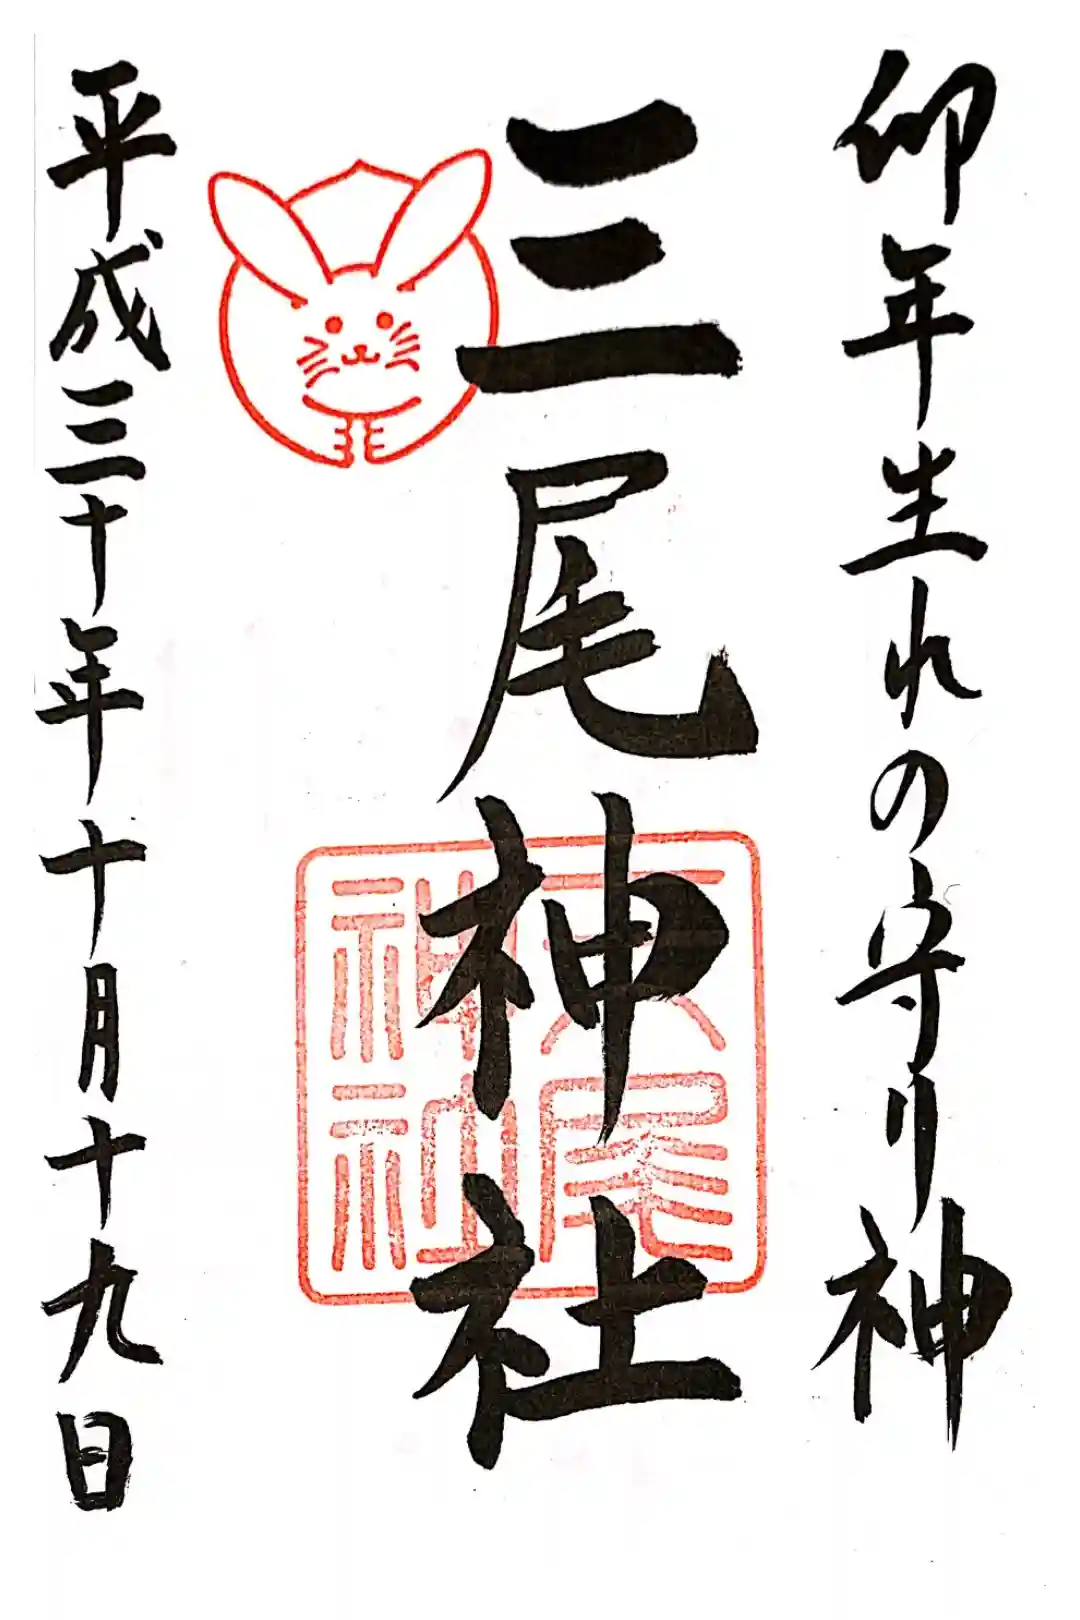 卯年生れの守り神
三尾神社
三尾神社
平成三十年十月十九日